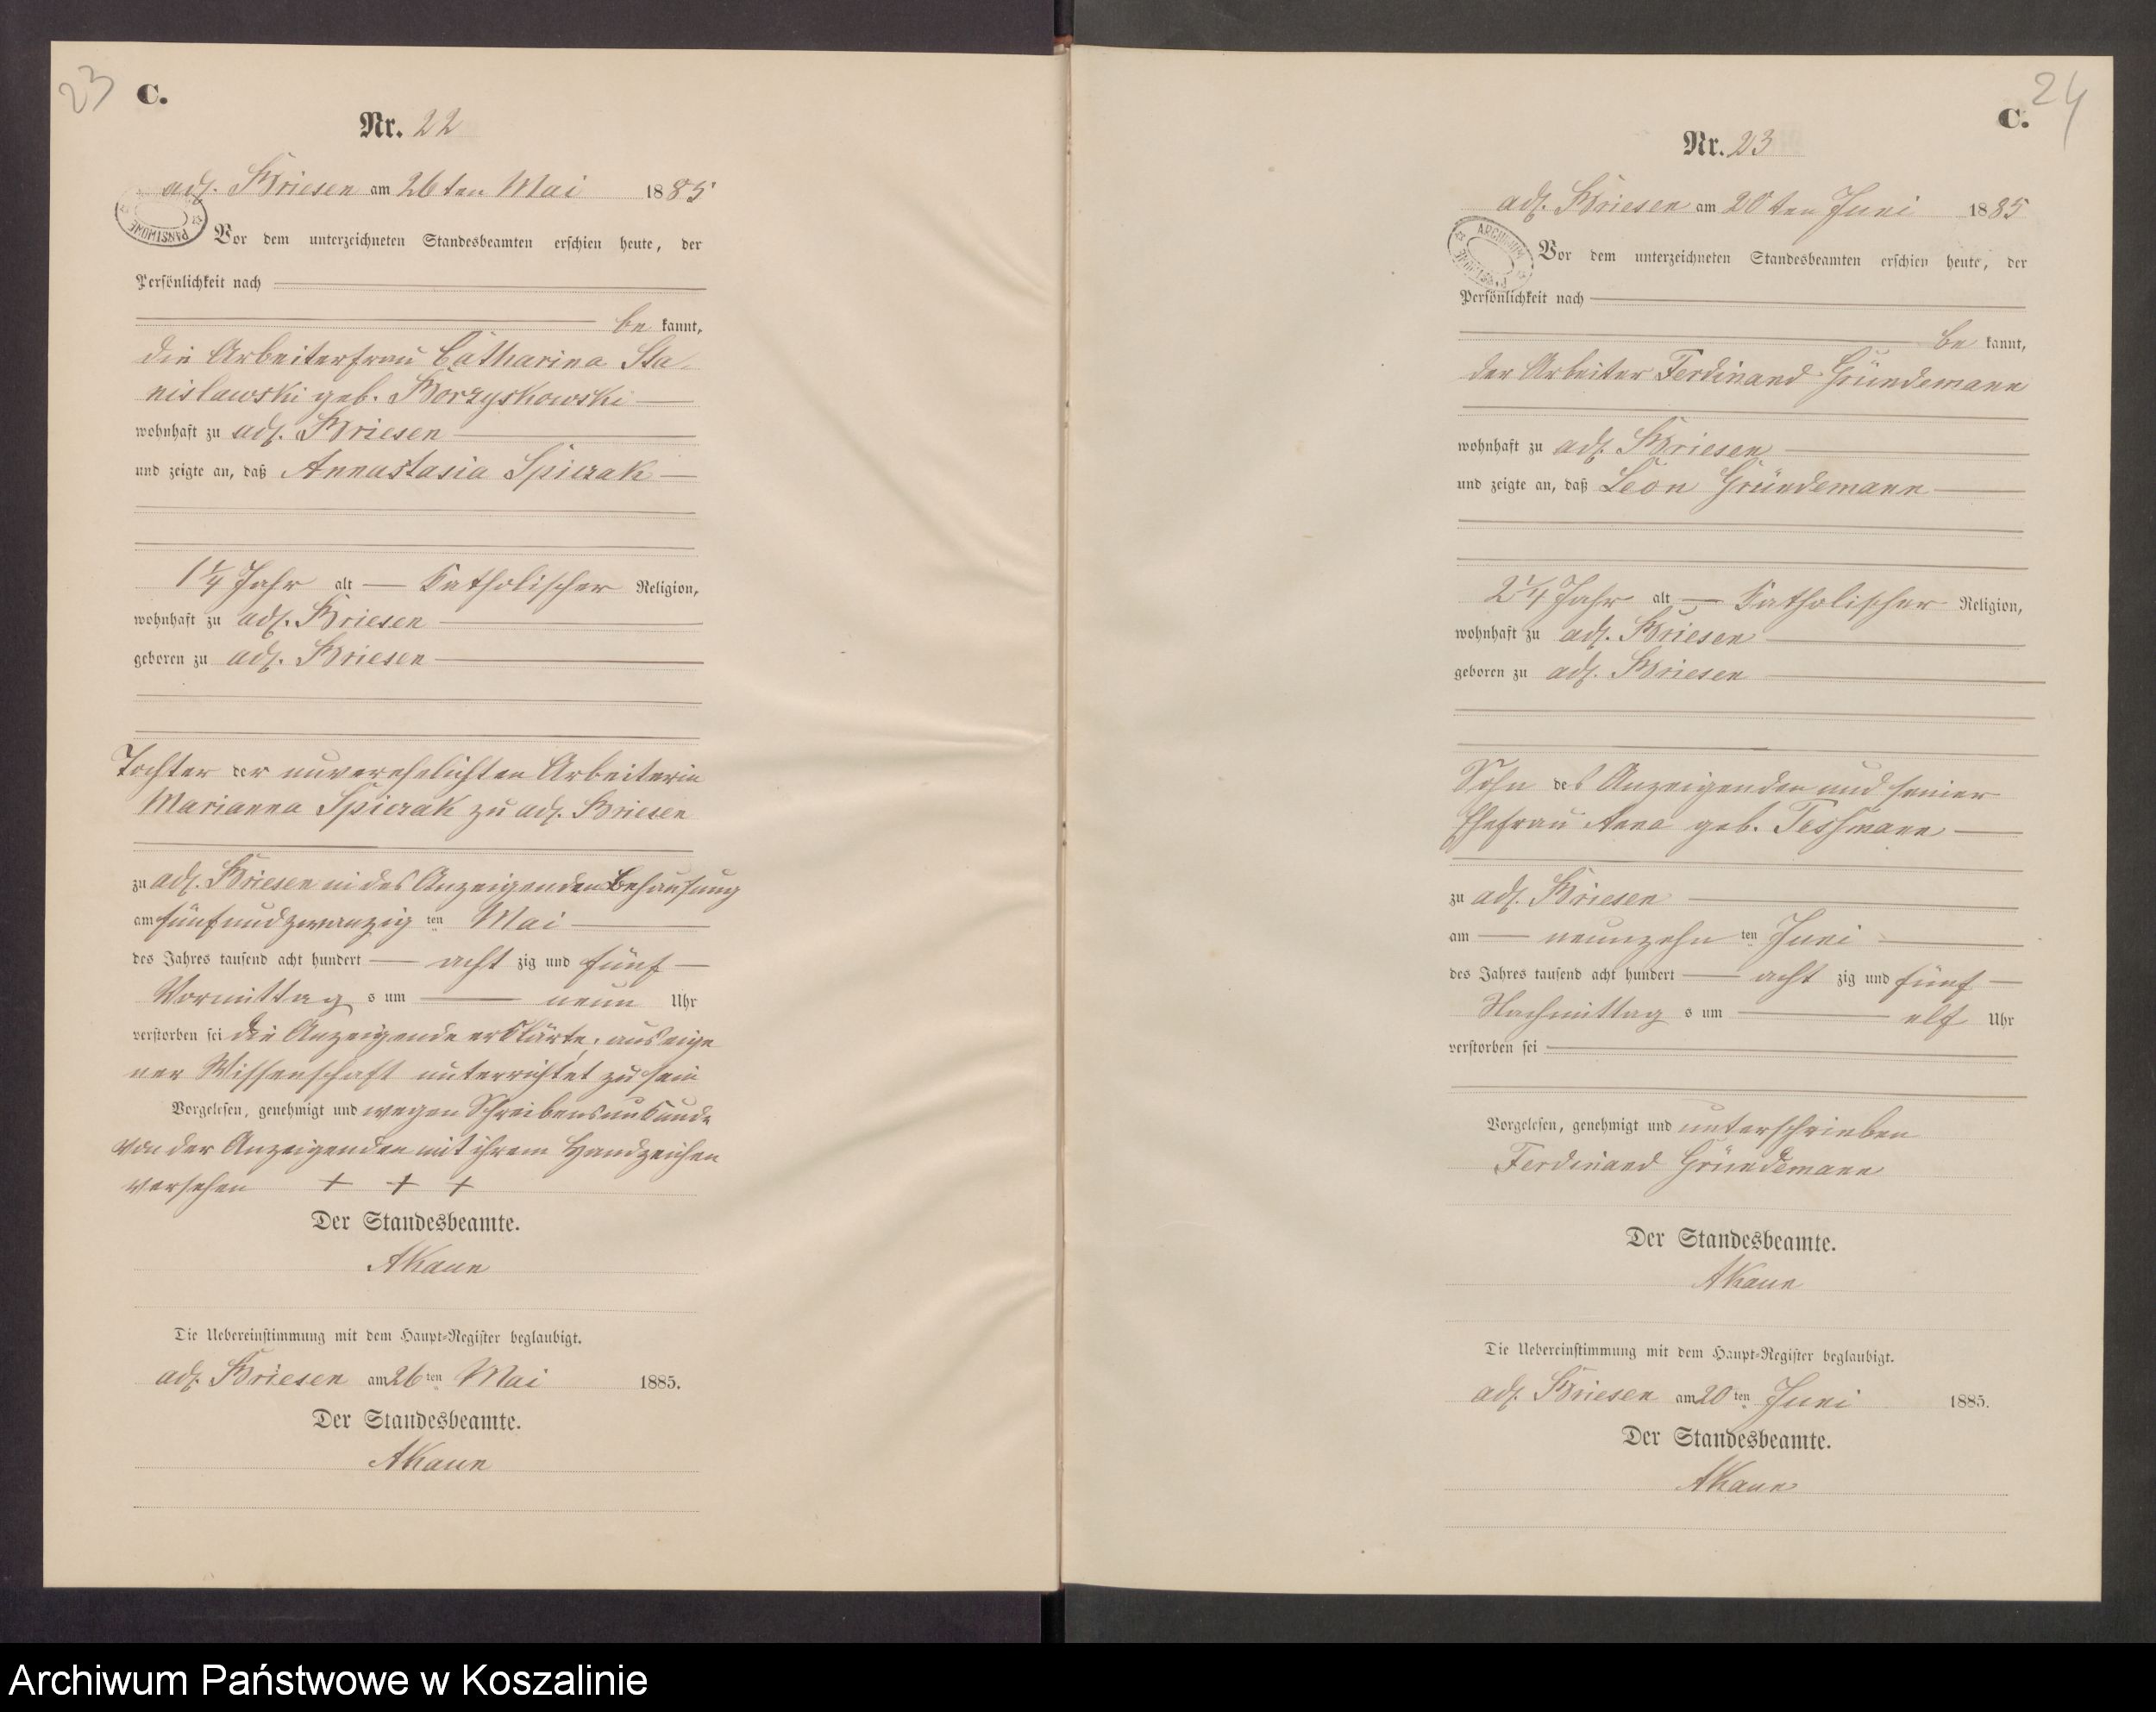 23
C.
Nr. 22
adl. Briesen am 26ten Mai 1885
PAŃSTWOWE
Vor dem unterzeichneten Standesbeamten erschien heute, der
Persönlichkeit nach
be kannt,
die Arbeiterfrau Catharina Sta-
nislawski geb. Borzyskowski
wohnhaft zu adl. Briesen
und zeigte an, daß Annastasia Spiczak
1 1/4 Jahr alt Katholischer Religion,
wohnhaft zu adl. Briesen
geboren zu adl. Briesen
Tochter der unverehelichten Arbeiterin
Marianna Spiczak zu adl. Briesen
zu adl. Briesen in des Anzeigenden Behausung
am fünfundzwanzig ten Mai
des Jahres tausend acht hundert acht zig und fünf
Vormittag s um neun Uhr
verstorben sei die Anzeigende erklärte, aus eige
ner Wissenschaft unterrichtet zu sein
Vorgelesen, genehmigt und wegen Schreibensunkunde
von der Anzeigenden mit ihrem Handzeichen
versehen + + +
Der Standesbeamte.
AKaun
Die Uebereinstimmung mit dem Haupt-Register beglaubigt.
adl. Briesen am 26 ten Mai 1885.
Der Standesbeamte.
AKaun
24
C.
Nr. 23
adl. Briesen am 20ten Juni 1885
ARCHIWUM PAŃSTWOWE
Vor dem unterzeichneten Standesbeamten erschien heute, der
Persönlichkeit nach
be kannt,
der Arbeiter Ferdinand Gründemann
wohnhaft zu adl. Briesen
und zeigte an, daß Leon Gründemann
2 1/4 Jahr alt Katholischer Religion,
wohnhaft zu adl. Briesen
geboren zu adl. Briesen
Sohn des Anzeigenden und seiner
Ehefrau Anna geb. Tessmann
zu adl. Briesen
am neunzehn ten Juni
des Jahres tausend acht hundert acht zig und fünf
Nachmittag s um elf Uhr
verstorben sei
Vorgelesen, genehmigt und unterschrieben
Ferdinand Gründemann
Der Standesbeamte.
AKaun
Die Uebereinstimmung mit dem Haupt-Register beglaubigt.
adl. Briesen am 20 ten Juni 1885.
Der Standesbeamte.
AKaun
Archiwum Państwowe w Koszalinie